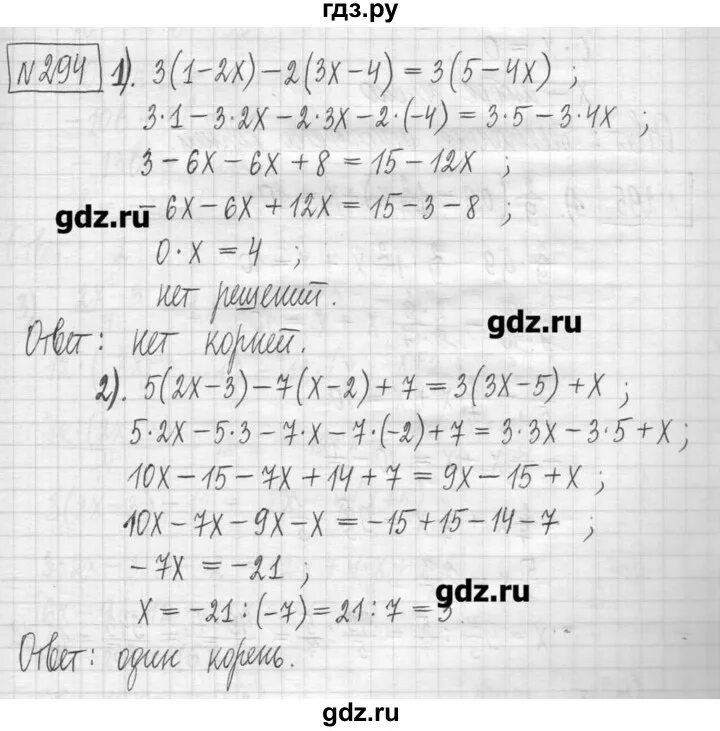 гдз.ру
№294 1). 3(1-2x)-2(3x-4)=3(5-4x) ;
3·1-3·2x-2·3x-2·(-4)=3·5-3·4x ;
3-6x-6x+8=15-12x ;
-6x-6x+12x=15-3-8 ;
gdz.ru
0·x=4 ;
нет решений.
gdz.ru
Ответ: нет корней.
2). 5(2x-3)-7(x-2)+7=3(3x-5)+x ;
5·2x-5·3-7·x-7·(-2)+7=3·3x-3·5+x ;
10x-15-7x+14+7=9x-15+x ;
10x-7x-9x-x=-15+15-14-7 ;
-7x=-21 ;
gdz.ru
x=-21:(-7)=21:7=3
Ответ: один корень.
gdz.ru